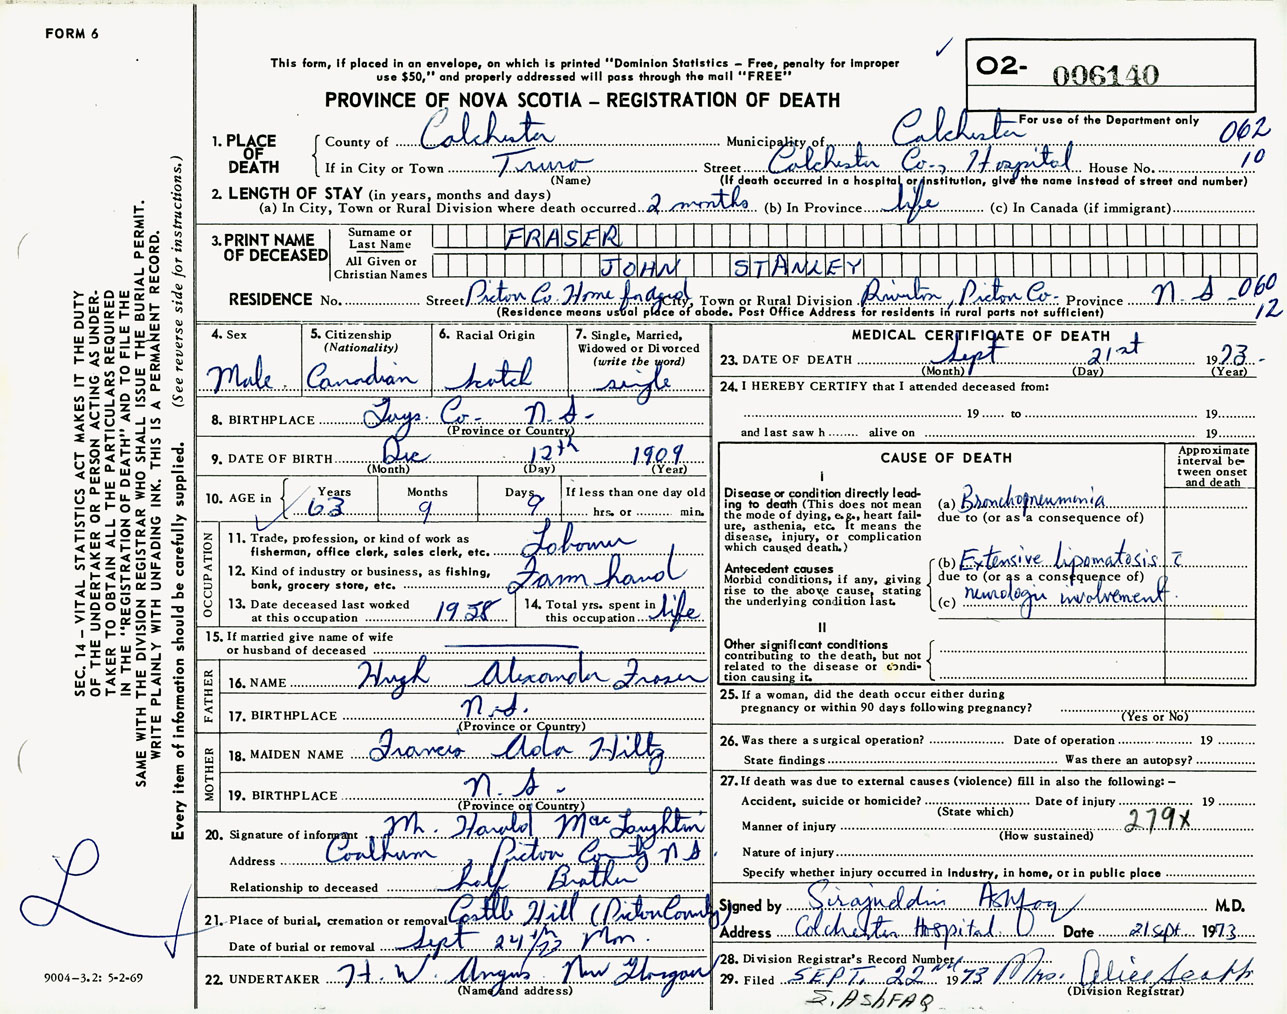 FORM 6
This form, if placed in an envelope, on which is printed "Dominion Statistics – Free, penalty for improper
use $50," and properly addressed will pass through the mail "FREE"
PROVINCE OF NOVA SCOTIA – REGISTRATION OF DEATH
O2- 006140
For use of the Department only
062
10
1. PLACE OF DEATH
County of Colchester Municipality of Colchester
If in City or Town Truro Street Colchester Co., Hospital House No.
(Name) (If death occurred in a hospital or institution, give the name instead of street and number)
2. LENGTH OF STAY (in years, months and days)
(a) In City, Town or Rural Division where death occurred 2 months (b) In Province life (c) In Canada (if immigrant)
3. PRINT NAME OF DECEASED
Surname or Last Name FRASER
All Given or Christian Names JOHN STANLEY
RESIDENCE No. Street Picton Co. Home for aged City, Town or Rural Division Riverton, Picton Co. Province N. S - 060
12
(Residence means usual place of abode. Post Office Address for residents in rural parts not sufficient)
4. Sex Male
5. Citizenship (Nationality) Canadian
6. Racial Origin Scotch
7. Single, Married, Widowed or Divorced (write the word) single
8. BIRTHPLACE Guys. Co- N.S-
(Province or Country)
9. DATE OF BIRTH Dec 12th 1909
(Month) (Day) (Year)
10. AGE in Years 63 Months 9 Days 9 If less than one day old
hrs. or min.
OCCUPATION
11. Trade, profession, or kind of work as fisherman, office clerk, sales clerk, etc. Labourer
12. Kind of industry or business, as fishing, bank, grocery store, etc. Farm hand
13. Date deceased last worked at this occupation 1958
14. Total yrs. spent in this occupation life
15. If married give name of wife or husband of deceased
FATHER
16. NAME Hugh Alexander Fraser
17. BIRTHPLACE N.S.
(Province or Country)
MOTHER
18. MAIDEN NAME Francis Ada Hiltz
19. BIRTHPLACE N. S -
(Province or Country)
20. Signature of informant Mr. Harold MacLaughlin
Address Coalburn, Picton County N S.
Relationship to deceased half Brother
21. Place of burial, cremation or removal Castle Hill (Picton County)
Date of burial or removal Sept 24th/73 Mon.
22. UNDERTAKER H. W. Angus New Glasgow
(Name and address)
MEDICAL CERTIFICATE OF DEATH
23. DATE OF DEATH Sept 21st 1973-
(Month) (Day) (Year)
24. I HEREBY CERTIFY that I attended deceased from:
19 to 19
and last saw h alive on 19
CAUSE OF DEATH
Approximate interval between onset and death
I
Disease or condition directly leading to death (This does not mean the mode of dying, e.g., heart failure, asthenia, etc. It means the disease, injury, or complication which caused death.)
(a) Bronchopneumonia
due to (or as a consequence of)
Antecedent causes
Morbid conditions, if any, giving rise to the above cause, stating the underlying condition last.
(b) Extensive lipomatosis c̄
due to (or as a consequence of)
(c) neurologic involvement.
II
Other significant conditions
contributing to the death, but not related to the disease or condition causing it.
25. If a woman, did the death occur either during
pregnancy or within 90 days following pregnancy?
(Yes or No)
26. Was there a surgical operation? Date of operation 19
State findings Was there an autopsy?
27. If death was due to external causes (violence) fill in also the following: –
Accident, suicide or homicide? Date of injury 19
(State which)
Manner of injury 279x
(How sustained)
Nature of injury
Specify whether injury occurred in industry, in home, or in public place
Signed by Sirajuddin Ashfaq M.D.
Address Colchester Hospital Date 21 sept. 1973
28. Division Registrar's Record Number
29. Filed SEPT. 22ND 1973 Mrs. Alice
(Division Registrar)
S. ASHFAQ
SEC. 14 – VITAL STATISTICS ACT MAKES IT THE DUTY
OF THE UNDERTAKER OR PERSON ACTING AS UNDER-
TAKER TO OBTAIN ALL THE PARTICULARS REQUIRED
IN THE "REGISTRATION OF DEATH" AND TO FILE THE
SAME WITH THE DIVISION REGISTRAR WHO SHALL ISSUE THE BURIAL PERMIT.
WRITE PLAINLY WITH UNFADING INK. THIS IS A PERMANENT RECORD.
Every item of information should be carefully supplied. (See reverse side for instructions.)
9004–3.2: 5-2-69